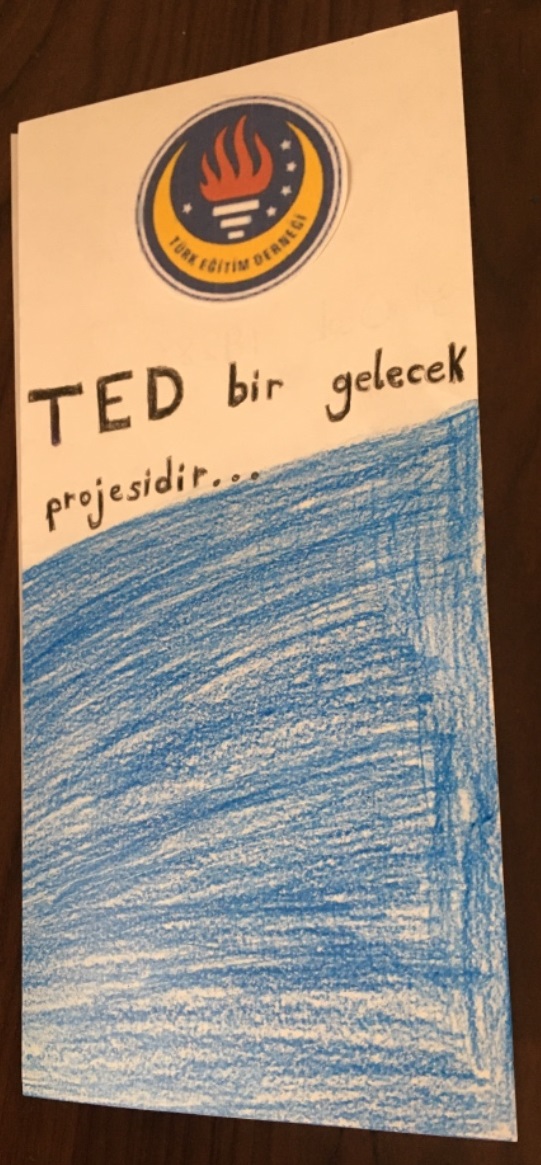 TÜRK EĞİTİM DERNEĞİ
TED bir gelecek
projesidir...